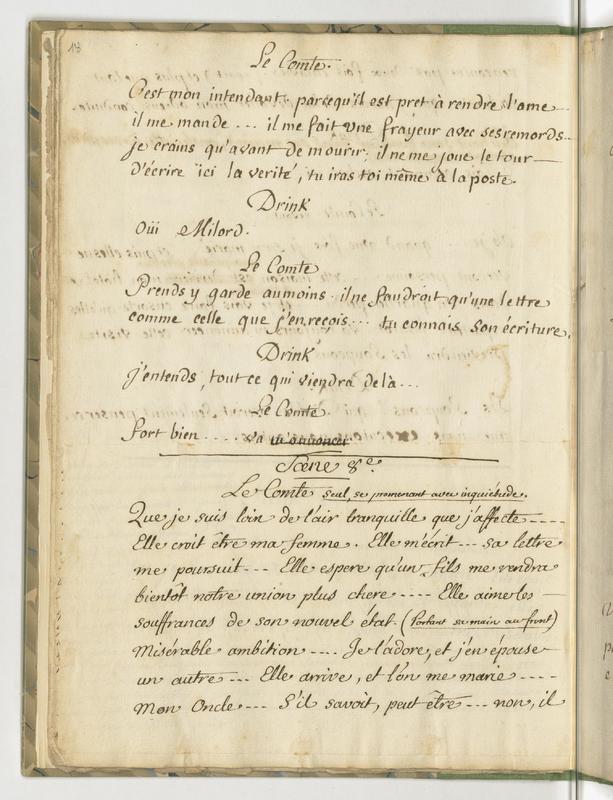 18
Le Comte.
C'est mon intendant. parcequ'il est pret à rendre l'ame
il me mande ... il me fait une frayeur avec ses remords..
je crains qu'avant de mourir, il ne me joue le tour
d'écrire ici la verité, tu iras toi même a la poste.
Drink
Oüi Milord.
Le Comte
Prends y garde aumoins. il ne faudroit qu'une lettre
comme celle que j'en reçois ... tu connais son écriture.
Drink
J'entends, tout ce qui viendra delà ...
Le Comte.
Fort bien .... va m'annoncer
Scene 8e.
Le Comte seul, se promenant avec inquiétude.
Que je suis loin de l'air tranquille que j'affecte ----
Elle croit être ma femme. Elle m'écrit --- sa lettre
me poursuit --- Elle espere qu'un fils me rendra
bientôt notre union plus chere ---- Elle aime les
souffrances de son nouvel état. (Portant sa main au front)
Misérable ambition ---- Je l'adore, et j'en épouse
un autre --- Elle arrive, et l'on me marie ----
Mon Oncle --- S'il savoit, peut être --- non, il